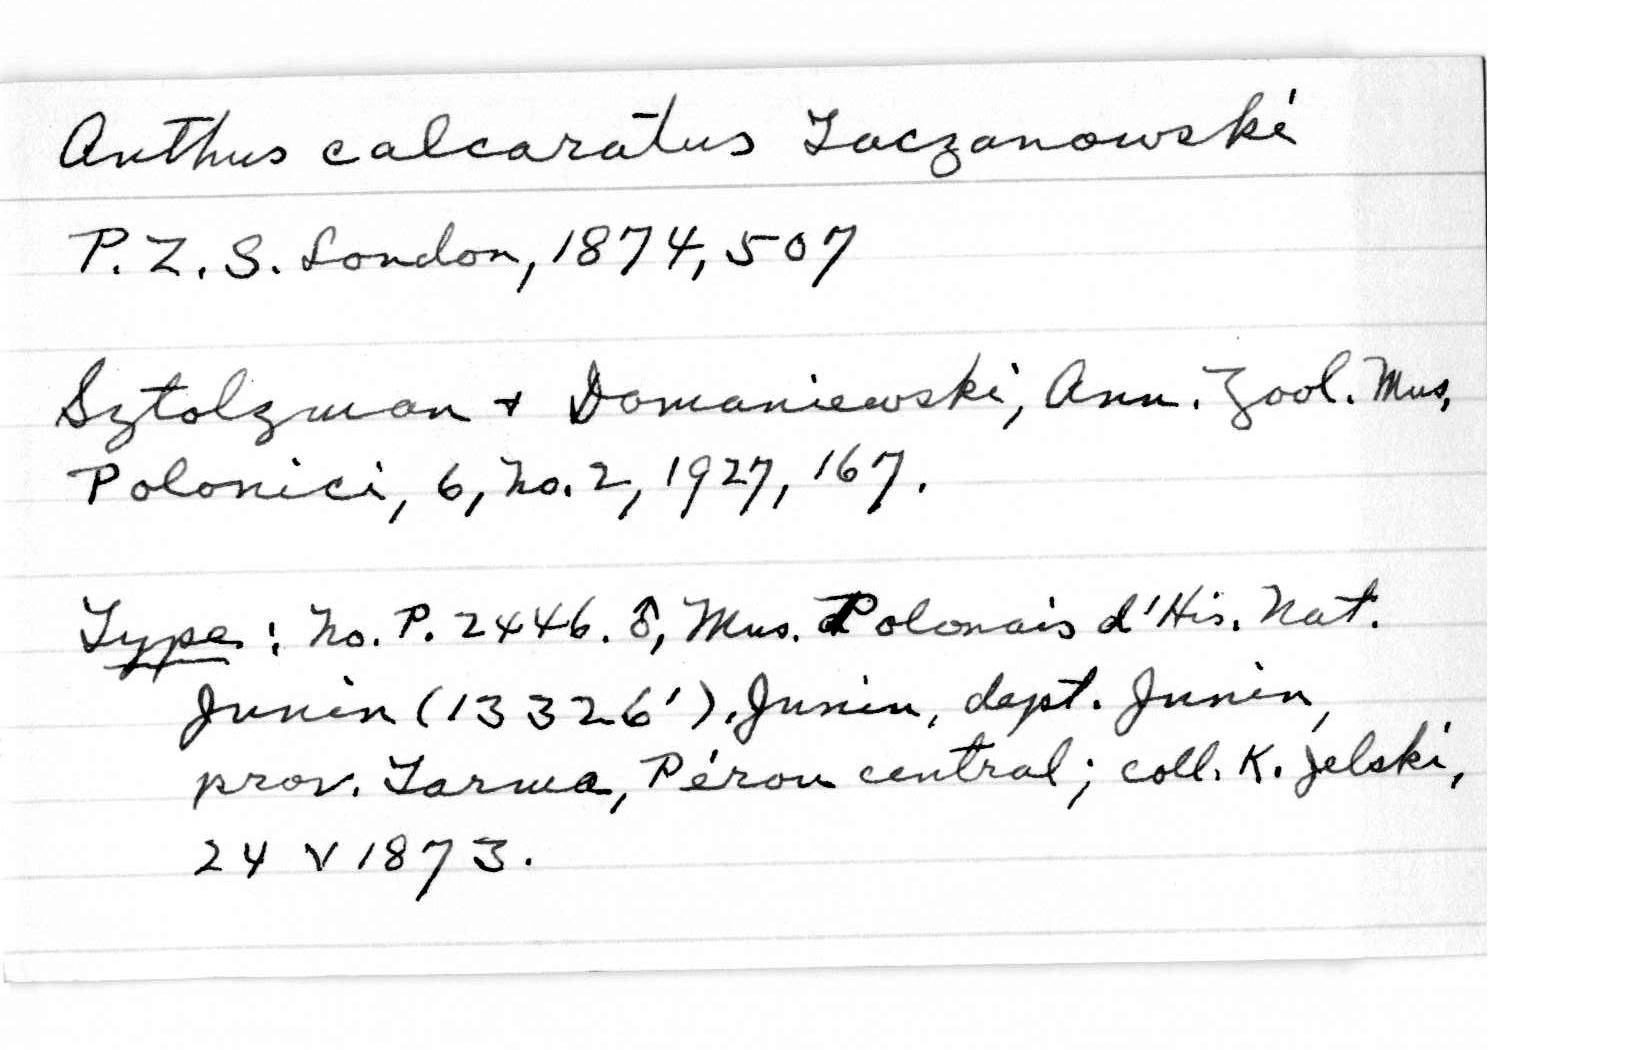 Anthus calcaratus Taczanowski
P. Z. S. London, 1874, 507
Sztolzman + Domaniewski, Ann. Zool. Mus,
Polonici, 6, No. 2, 1927, 167.
Type : No. P. 2446. ♂, Mus. Polonais d'His. Nat.
Junin (13326'). Junin, dept. Junin,
prov. Tarma, Pérou central ; coll. K. Jelski,
24 V 1873.